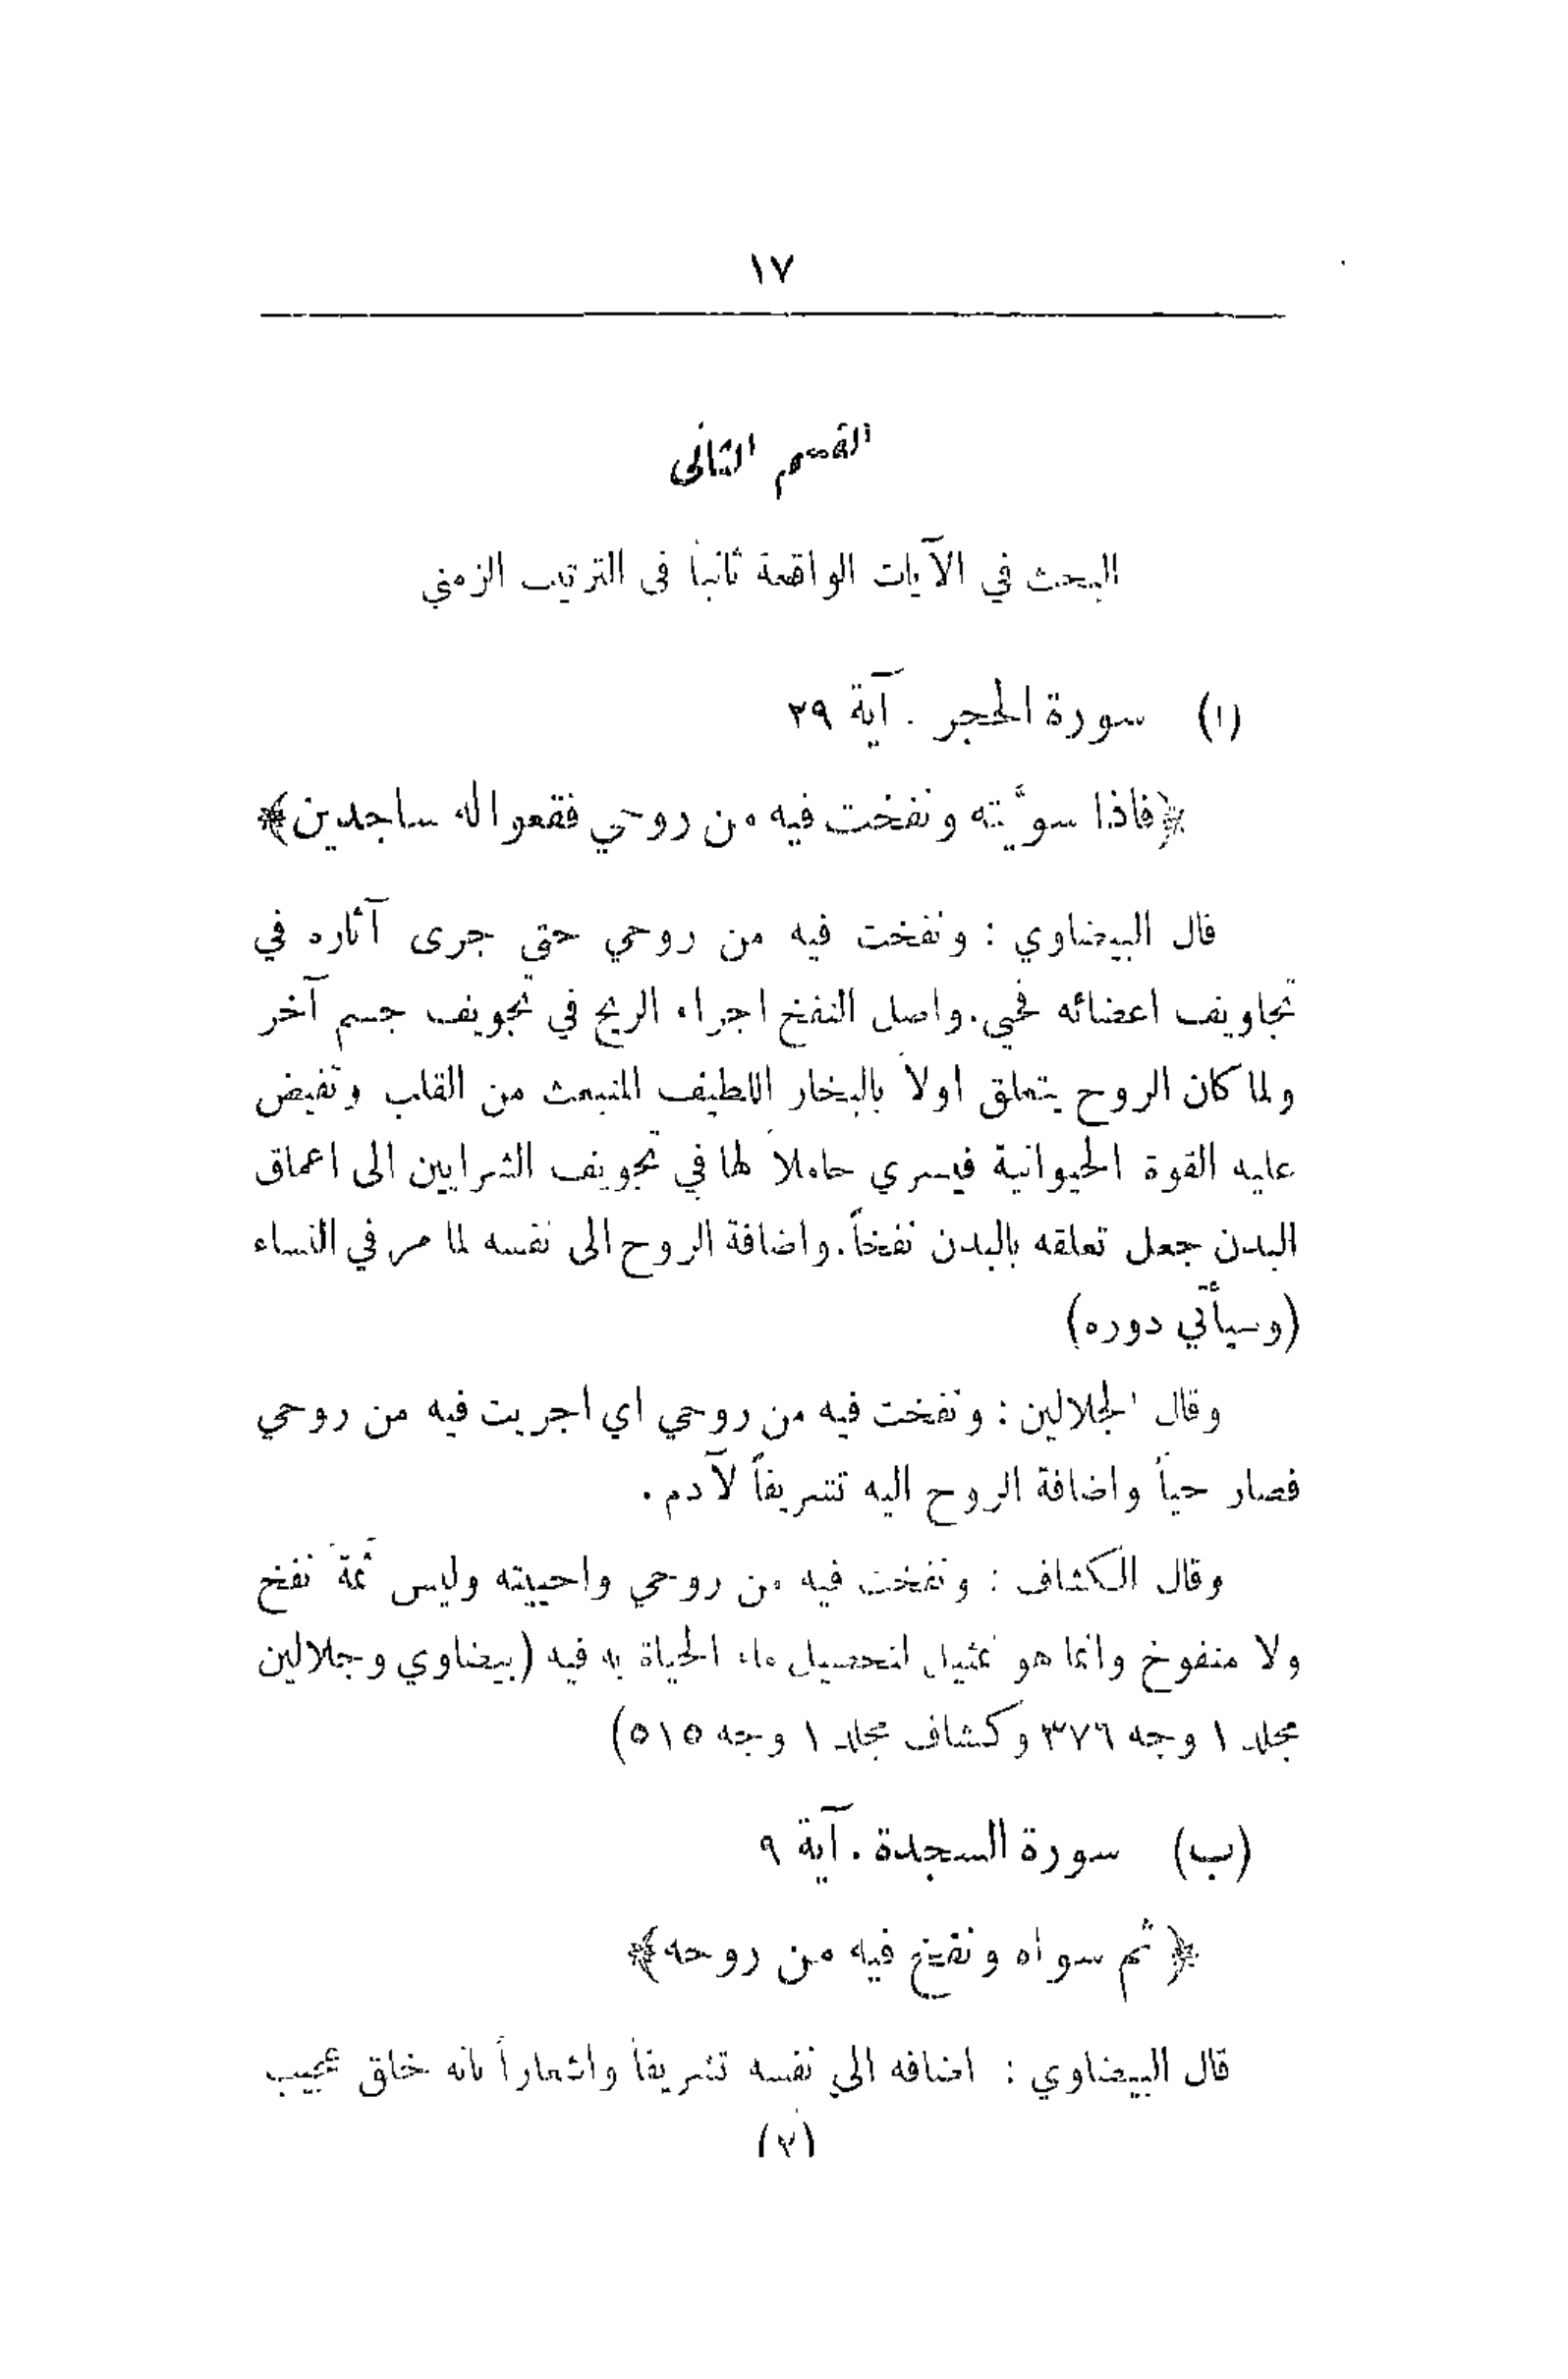 ١٧
القسم الثاني
البحث في الآيات الواقعة ثانياً في الترتيب الزمني
(ا) سورة الحجر . آية ٢٩
﴿فاذا سوَّيته ونفخت فيه من روحي فقعوا له ساجدين﴾
قال البيضاوي : ونفخت فيه من روحي حتى جرى آثاره في
تجاويف اعضائه فحيي. واصل النفخ اجراء الريح في تجويف جسم آخر
ولما كان الروح يتعلق اولاً بالبخار اللطيف المنبعث من القلب وتفيض
عليه القوة الحيوانية فيسري حاملاً لها في تجويف الشرايين الى اعماق
البدن جعل تعلقه بالبدن نفخاً. واضافة الروح الى نفسه لما مر في النساء
(وسيأتي دوره)
وقال الجلالين : ونفخت فيه من روحي اي اجريت فيه من روحي
فصار حياً واضافة الروح اليه تشريفاً لآدم .
وقال الكشاف : ونفخت فيه من روحي واحييته وليس ثمة نفخ
ولا منفوخ وانما هو تمثيل لتحصيل ماء الحياة به فيه (بيضاوي وجلالين
مجلد ١ وجه ٣٧٦ وكشاف مجلد ١ وجه ٥١٥)
(ب) سورة السجدة . آية ٩
﴿ثم سواه ونفخ فيه من روحه﴾
قال البيضاوي : اضافه الى نفسه تشريفاً واشعاراً بانه خلق عجيب
(٢)